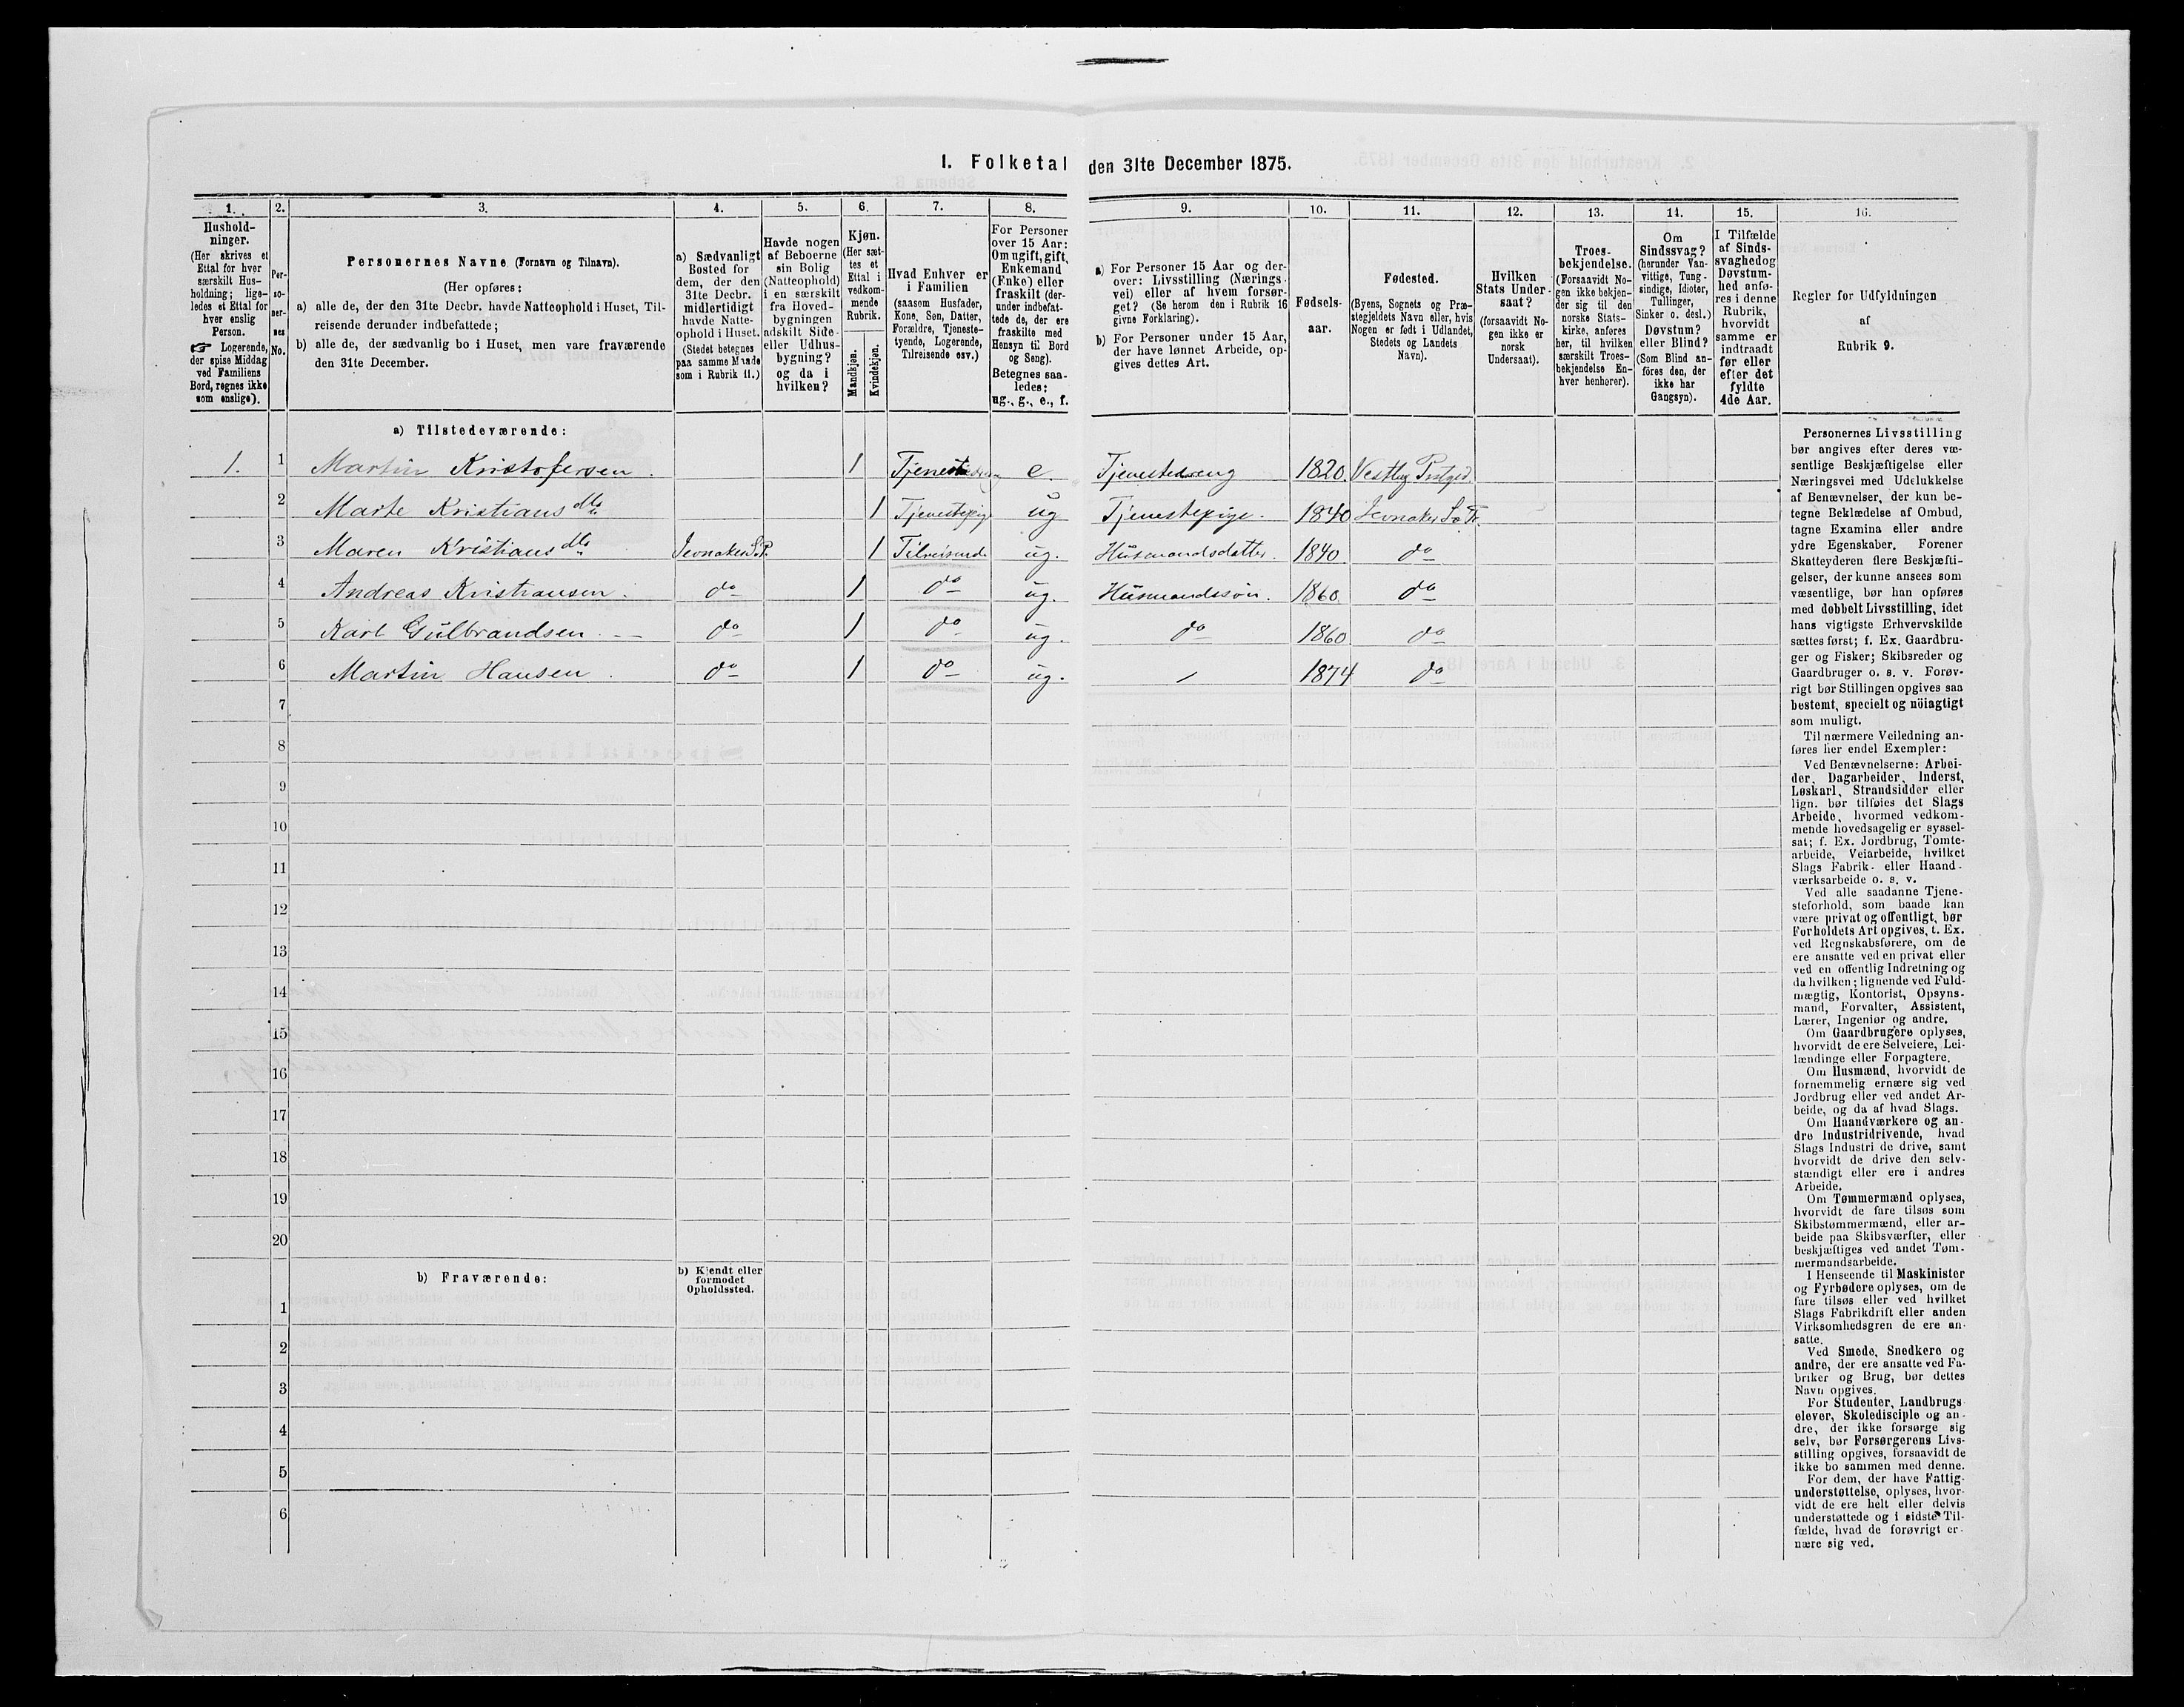 1. Folketal den 31te December 1875.
1. 2. 3. 4. 5. 6. 7. 8. 9. 10. 11. 12. 13. 14. 15. 16.
Hushold-
ninger.
(Her skrives et
Ettal for hver
særskilt Hus-
holdning; lige-
ledes et Ettal for
hver enslig
Person.
☞ Logerende,
der spise Middag
ved Familiens
Bord, regnes ikke
som enslige).
Per-
so-
ner-
nes
No.
Personernes Navne (Fornavn og Tilnavn).
(Her opføres:
a) alle de, der den 31te Decbr. havde Natteophold i Huset, Til-
reisende derunder indbefattede;
b) alle de, der sædvanlig bo i Huset, men vare fraværende
den 31te December.
a) Sædvanligt
Bosted for
dem, der den
31te Decbr.
midlertidigt
havde Natte-
ophold i Huset.
(Stedet betegnes
paa samme Maade
som i Rubrik 11.)
Havde nogen
af Beboerne
sin Bolig
(Natteophold)
i en særskilt
fra Hoved-
bygningen
adskilt Side-
eller Udhus-
bygning?
og da i
hvilken?
Kjøn.
(Her sæt-
tes et
Ettal i
vedkom-
mende
Rubrik.
Mandkjøn.
Kvindekjøn.
Hvad Enhver er
i Familien
(saasom Husfader,
Kone, Søn, Datter,
Forældre, Tjeneste-
tyende, Logerende,
Tilreisende osv.)
For Personer
over 15 Aar:
Om ugift, gift,
Enkemand
(Enke) eller
fraskilt (der-
under indbefat-
tede de, der ere
fraskilte med
Hensyn til Bord
og Seng).
Betegnes saa-
ledes:
ug., g., e., f.
a) For Personer 15 Aar og der-
over: Livsstilling (Nærings-
vei) eller af hvem forsør-
get? (Se herom den i Rubrik 16
givne Forklaring).
b) For Personer under 15 Aar,
der have lønnet Arbeide, op-
gives dettes Art.
Fødsels-
aar.
Fødested.
(Byens, Sognets og Præ-
stegjeldets Navn eller, hvis
Nogen er født i Udlandet,
Stedets og Landets
Navn).
Hvilken
Stats Under-
saat?
(forsaavidt No-
gen ikke er
norsk
Undersaat).
Troes-
bekjendelse.
(Forsaavidt No-
gen ikke bekjen-
der sig til den
norske Stats-
kirke, anføres
her, til hvilken
særskilt Troes-
bekjendelse En-
hver henhører).
Om
Sindssvag?
(herunder Van-
vittige, Tung-
sindige, Idioter,
Tullinger,
Sinker o. desl.)
Døvstum?
eller Blind?
(Som Blind an-
føres den, der
ikke har
Gangsyn).
I Tilfælde
af Sinds-
svaghed og
Døvstum-
hed anfø-
res i denne
Rubrik,
hvorvidt
samme er
indtraadt
før eller
efter det
fyldte
4de Aar.
Regler for Udfyldningen
af
Rubrik 9.
a) Tilstedeværende:
1. 1 Martin Kristofersen. 1 e. Tjenestedreng 1820.
2 Marte Kristians dtr 1 Tjenestepige ug Tjenestepige. 1840
3 Maren Kristians dtr 1 Tilreisende ug. Husmandsdatter. 1840. do
4 Andreas Kristiansen. do 1 do ug. Husmandssøn. 1860. do
5 Karl Gulbrandsen. do 1 do ug. do 1860 do
6 Martin Hansen. do 1 do ug. 1874 do
7
8
9
10
11
12
13
14
15
16
17
18
19
20
b) Fraværende:
b) Kjendt eller
formodet
Opholdssted.
1
2
3
4
5
6
Personernes Livsstilling
bør angives efter deres væ-
sentlige Beskjæftigelse eller
Næringsvei med Udelukkelse
af Benævnelser, der kun be-
tegne Beklædelse af Ombud,
tagne Examina eller andre
ydre Egenskaber. Forener
Skatteyderen flere Beskjæfti-
gelser, der kunne ansees som
væsentlige, bør han opføres
med dobbelt Livsstilling, idet
hans vigtigste Erhvervskilde
sættes først; f. Ex. Gaardbru-
ger og Fisker; Skibsreder og
Gaardbruger o. s. v. Forøv-
rigt bør Stillingen opgives saa
bestemt, specielt og nöiagtigt
som muligt.
Til nærmere Veiledning an-
føres her endel Exempler:
Ved Benævnelserne: Arbei-
der, Dagarbeider, Inderst,
Løskarl, Strandsidder eller
lign. bør tilføies det Slags
Arbeide, hvormed vedkom-
mende hovedsagelig er syssel-
sat; f. Ex. Jordbrug, Tomte-
arbeide, Veiarbeide, hvilket
Slags Fabrik- eller Haand-
værksarbeide o. s. v.
Ved alle saadanne Tjene-
steforhold, som baade kan
være privat og offentligt, bør
Forholdets Art opgives, t. Ex.
ved Regnskabsførere, om de
ere ansatte ved en privat eller
ved en offentlig Indretning og
da hvilken; lignende ved Fuld-
mægtig, Kontorist, Opsyns-
mand, Forvalter, Assistent,
Lærer, Ingeniør og andre.
Om Gaardbrugere oplyses,
hvorvidt de ere Selveiere, Lei-
lændinge eller Forpagtere.
Om Husmænd, hvorvidt de
fornemmelig ernære sig ved
Jordbrug eller ved andet Ar-
beide, og da af hvad Slags.
Om Haandværkere og an-
dre Industridrivende, hvad
Slags Industri de drive, samt
hvorvidt de drive den selv-
stændigt eller ere i andres
Arbeide.
Om Tømmermænd oplyses,
hvorvidt de fare tilsøs som
Skibstømmermænd, eller ar-
beide paa Skibsværfter, eller
beskjæftiges ved andet Tøm-
mermandsarbeide.
I Henseende til Maskinister
og Fyrbødere oplyses, om de
fare tilsøs eller ved hvilket
Slags Fabrikdrift eller anden
Virksomhedsgren de ere an-
satte.
Ved Smede, Snedkere og
andre, der ere ansatte ved Fa-
briker og Brug, bør dettes
Navn opgives.
For Studenter, Landbrugs-
elever, Skoledisciple og an-
dre, der ikke forsørge sig
selv, bør Forsørgerens Livs-
stilling opgives, forsaavidt de
ikke bo sammen med denne.
For dem, der have Fattig-
understøttelse, oplyses, hvor-
vidt de ere helt eller delvis
understøttede og i sidste Til-
fælde, hvad de forøvrigt er-
nære sig ved.